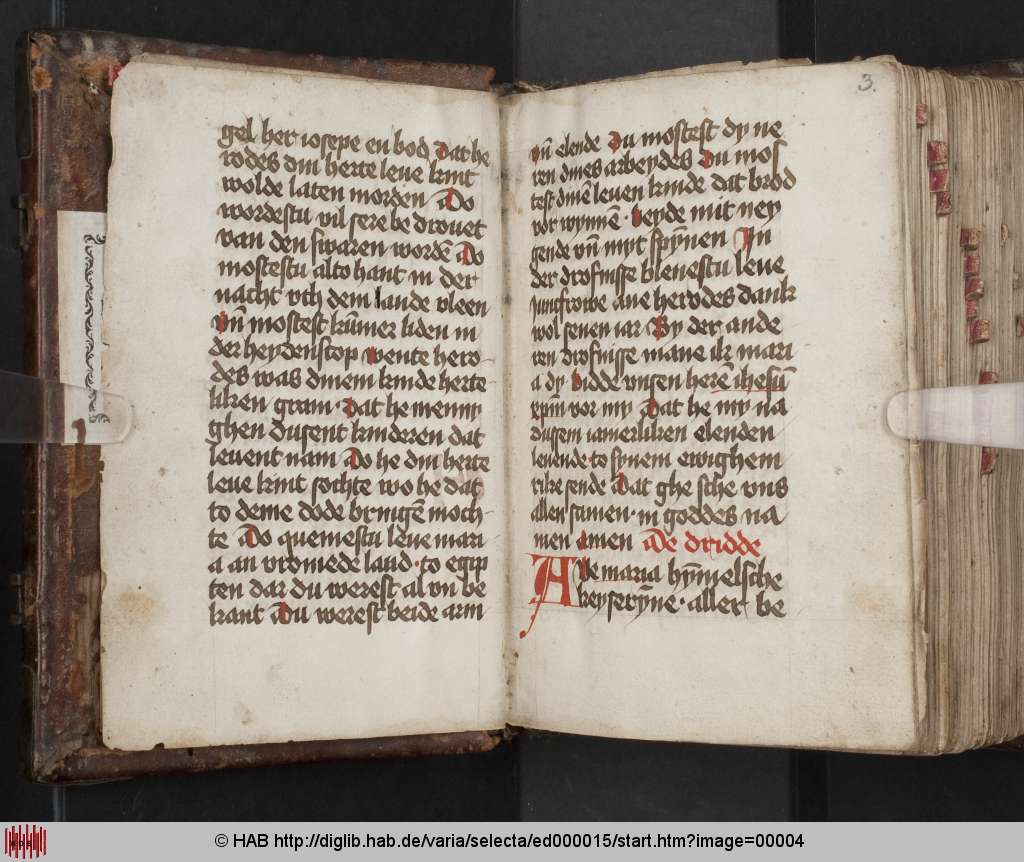 gel her iosepe en bod Dat he
rodes din herte leue kint
wolde laten morden Do
wordestu vil sere be drouet
van den swaren wordē Do
mostestu alto hant in der
nacht vth dem lande vleen
vn̄ mostest kūmer liden in
der heydenscop wente hero
des was dinem kinde herte
liken gram · Dat he menny
ghen dusent kinderen dat
leuent nam Do he din herte
leue kint sochte wo he dat
to deme dode bringē moch
te Do quemestu leue mari
a an vromede land · to egip
ten dar du werest al vn be
kant Du werest beide arm
3.
vn̄ elende Du mostest dy ne
ren dines arbeydes Du mos
test dinē leuen kinde dat brod
vor wynnē · beyde mit ney
gende vn̄ myt spȳnen In
der drofnisse bleuestu leue
iuncfrowe ane herodes dank
wol seuen iar By der ande
ren drofnisse mane ik mari
a dy bidde vnsen herē ihesū
xpm̄ vor my Dat he my na
dussem iamerliken elenden
leuende to synem ewighem
rike sende Dat ghe sche vns
allen samen · in goddes na
men amen De dridde
Aue maria hȳmelsche
keyserȳne · aller be
© HAB http://diglib.hab.de/varia/selecta/ed000015/start.htm?image=00004